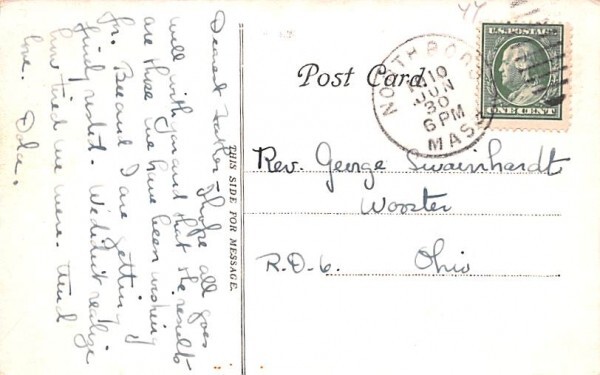 Dearest Father - I hope all goes
well with you and that the results
are those we have been wishing
for. Bee and I are getting
finely rested. We didn't realize
how tired we were. Much
love. Ada.
THIS SIDE FOR MESSAGE.
44
Post Card.
NORTHBORO
1910
JUN
30
6 PM
MASS
U.S. POSTAGE
ONE CENT
Rev. George Swainhardt
Wooster
R.D-6. Ohio